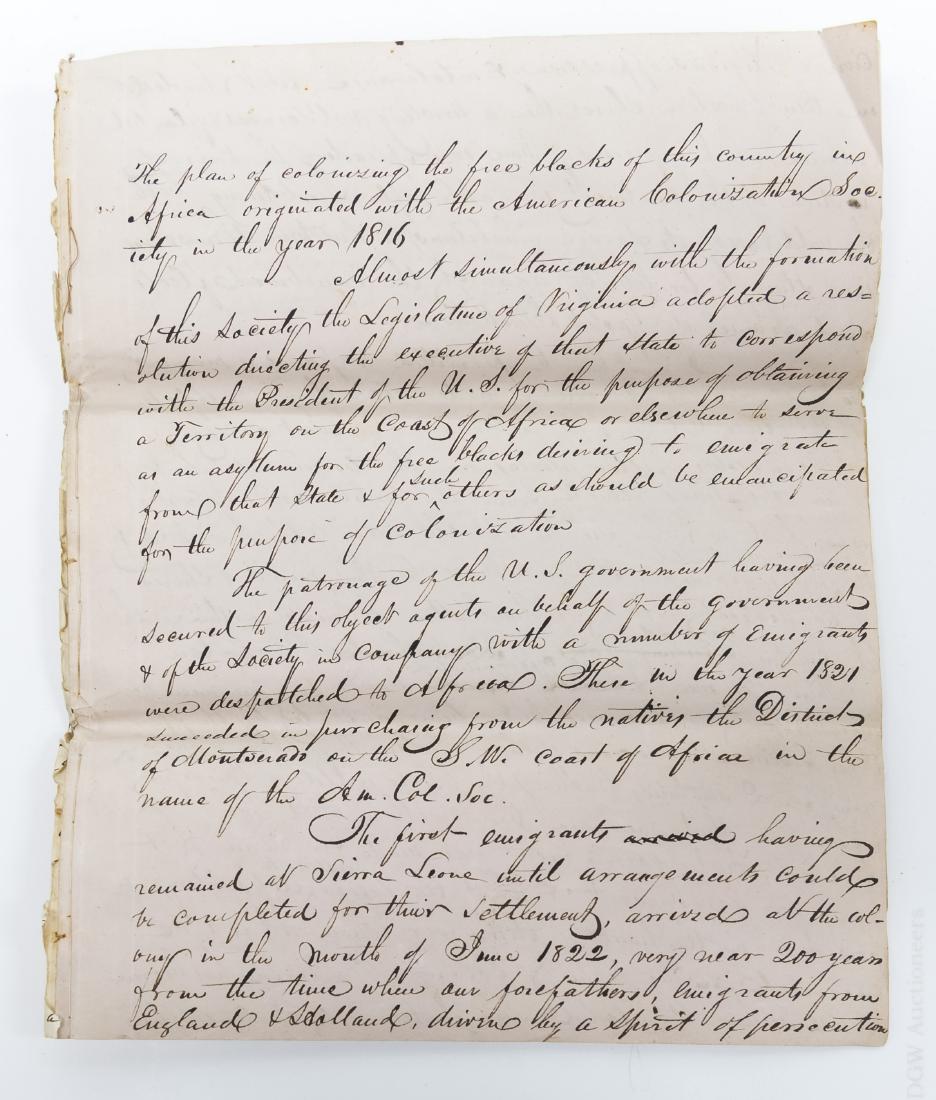 The plan of colonizing the free blacks of this country in
Africa originated with the American Colonization Soc-
iety in the year 1816
Almost simultaneously with the formation
of this Society the Legislature of Virginia adopted a res=
olution directing the executive of that state to correspond
with the President of the U. S. for the purpose of obtaining
a Territory on the Coast of Africa or elsewhere to serve
as an asylum for the free blacks desiring to emigrate
from that State & for such ^ others as should be emancipated
for the purpose of colonization
The patronage of the U. S. government having been
secured to this object agents on behalf of the government
& of the Society in company with a number of Emigrants
were despatched to Africa. These in the year 1821
succeeded in purchasing from the natives the District
of Montserado on the S.W. coast of Africa in the
name of the Am. Col. Soc.
The first emigrants arrived having
remained at Sierra Leone until arrangements could
be completed for their settlement, arrived at the col-
ony in the month of June 1822, very near 200 years
from the time when our forefathers, emigrants from
England & Holland, driven by a spirit of persecution
DGW Auctioneers